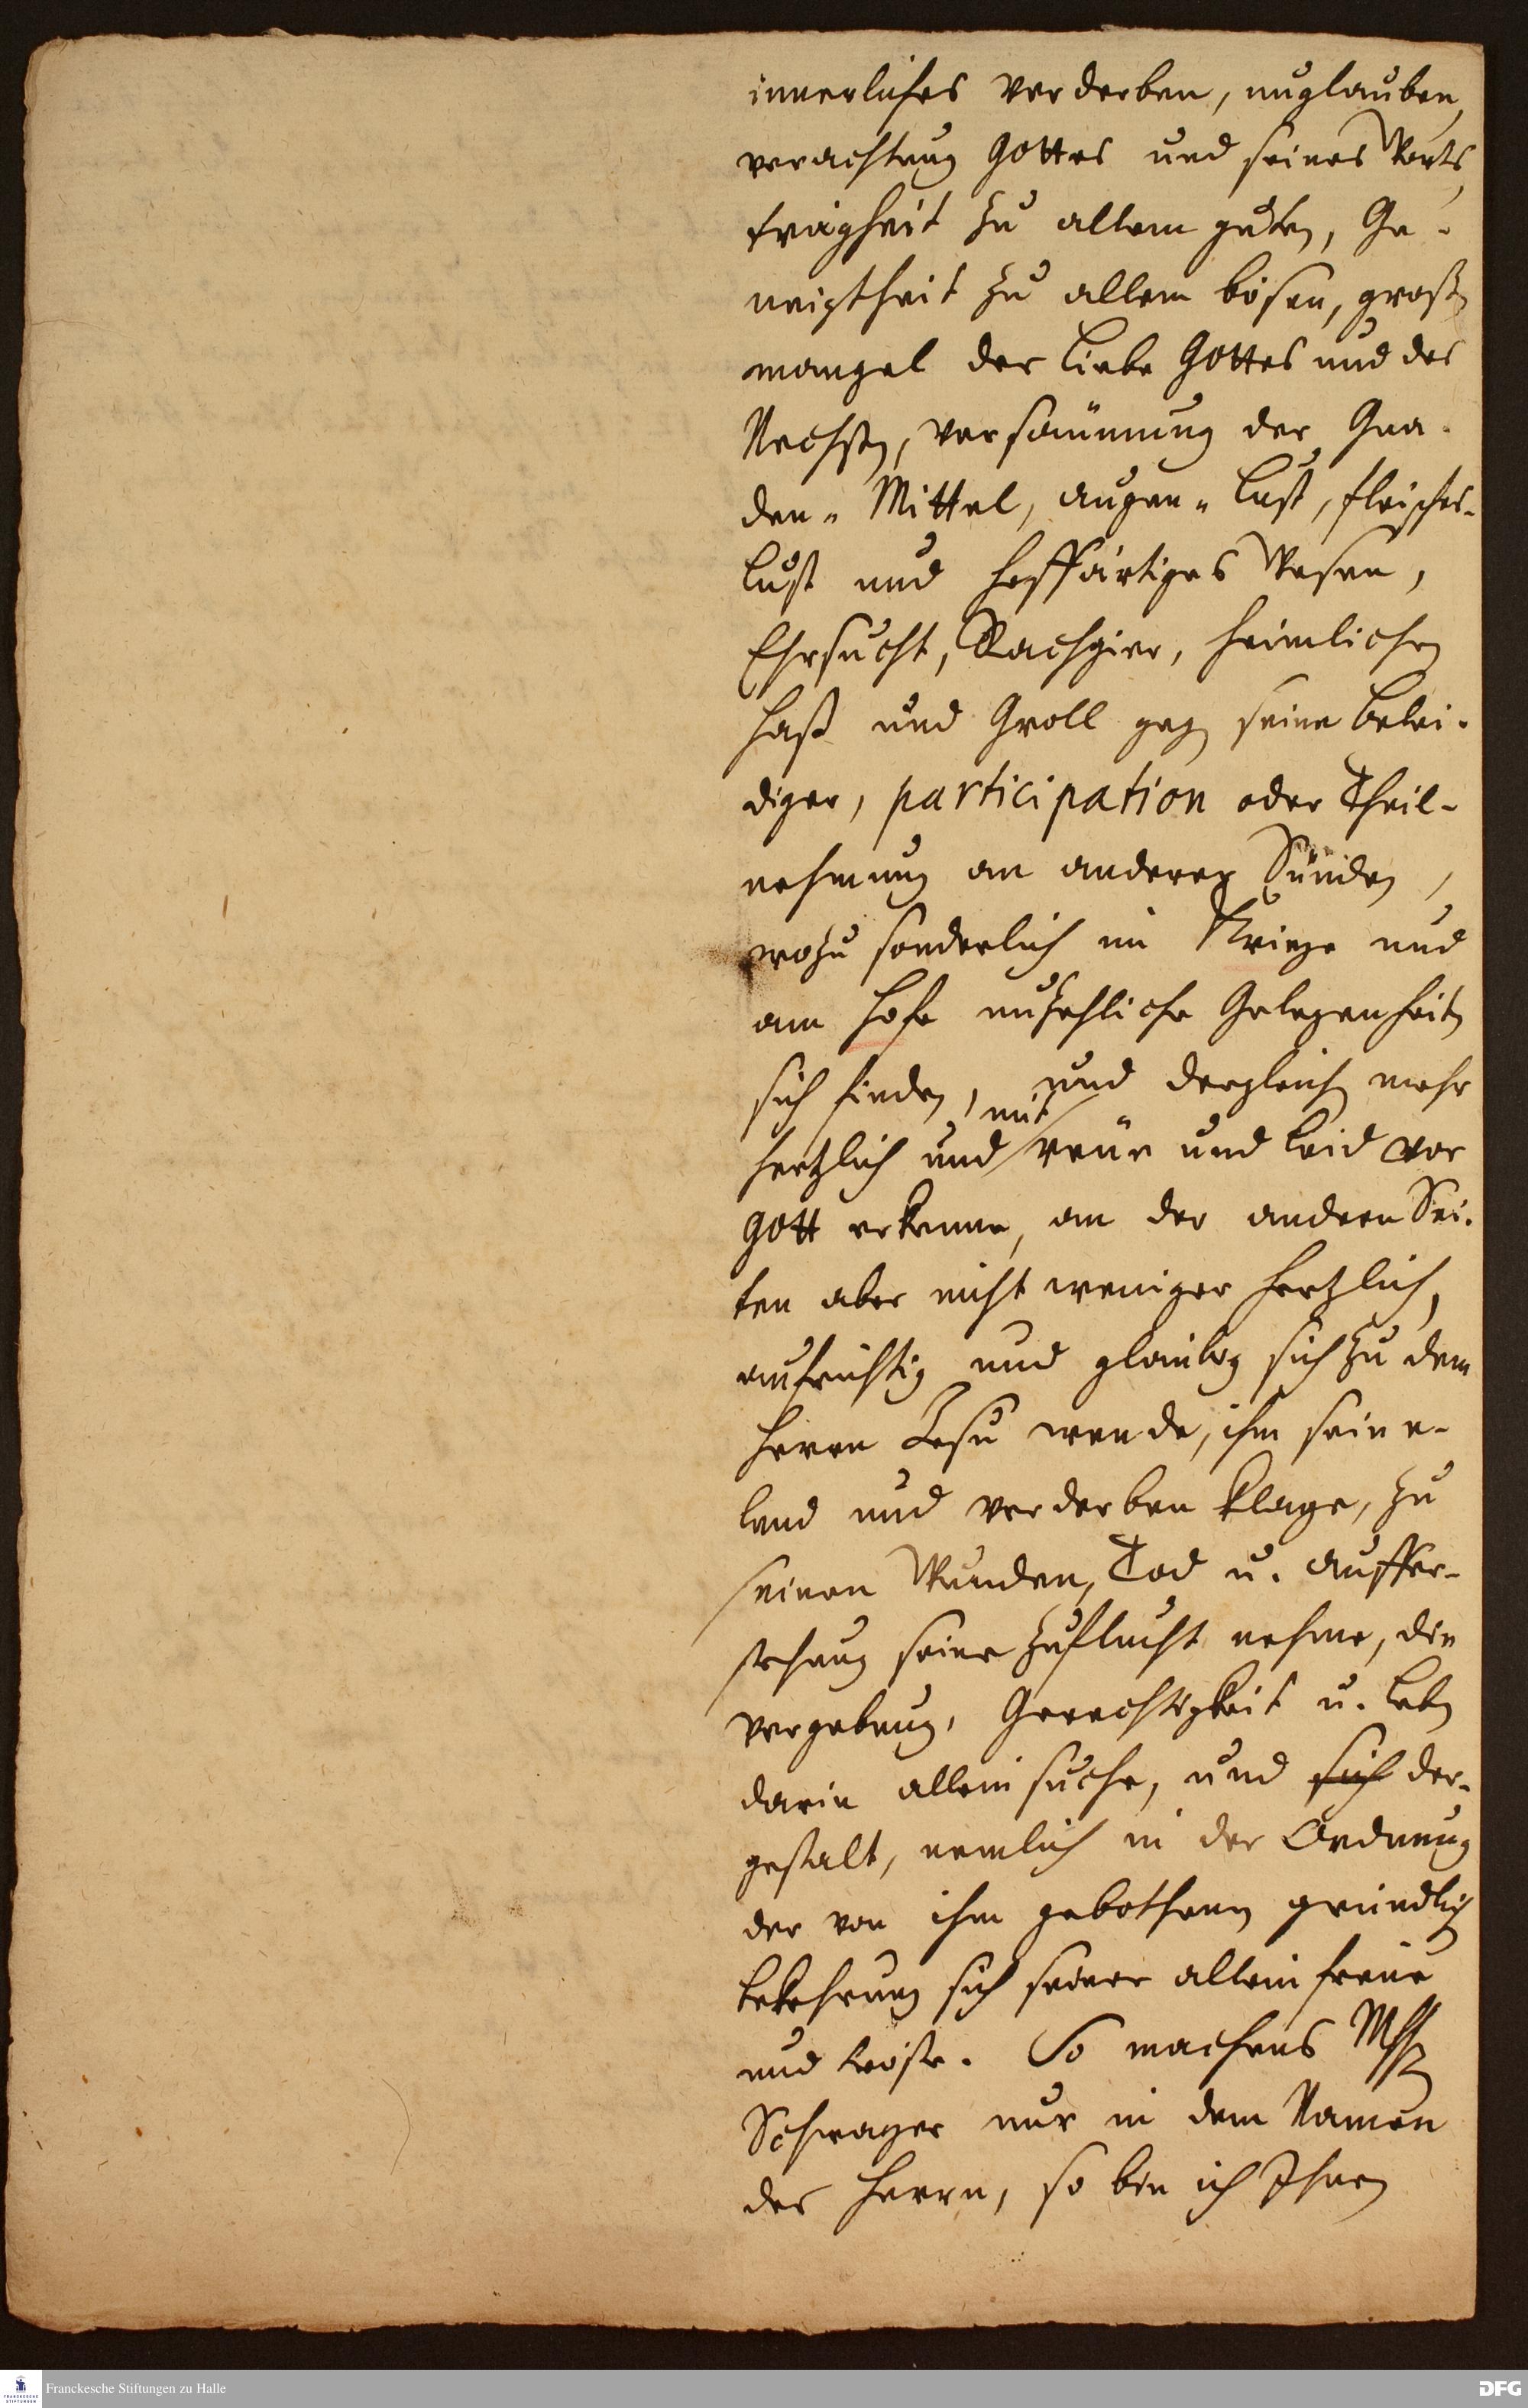 innerliches verderben, unglauben,
verachtung Gottes und seines Worts,
trägheit zu allem guten, Ge-
neigtheit zu allem bösen, großen
mangel der Liebe Gottes und des
Nechsten, versäumung der Gna-
den-Mittel, augen-Lust, fleisches-
Lust und hoffärtiges Wesen,
Ehrsucht, Rachgier, heimlichen
Haß und Groll gegen seine Belei-
diger, participation oder Theil-
nehmung an anderer Sünden,
wozu sonderlich im Kriege und
am Hofe unzehliche Gelegenheiten
sich finden, und dergleichen mehr
hertzlich und mit reüe und Leid vor
Gott erkenne, an der andern Sei-
ten aber nicht weniger hertzlich,
aufrichtig und gläubig sich zu dem
Herrn Jesu wende, ihm sein e-
lend und verderben klage, zu
seinen Wunden, Tod u. Auffer-
stehung seine Zuflucht nehme, die
Vergebung, Gerechtigkeit u. Leben
darin allein suche, und sich der-
gestalt, nemlich in der Ordnung
der von ihm gebothenen gründlichen
bekehrung sich seiner allein freüe
und tröste. So machens
Schwager nur in dem Namen
des Herrn, so bin ich Ihnen
Franckesche Stiftungen zu Halle
DFG